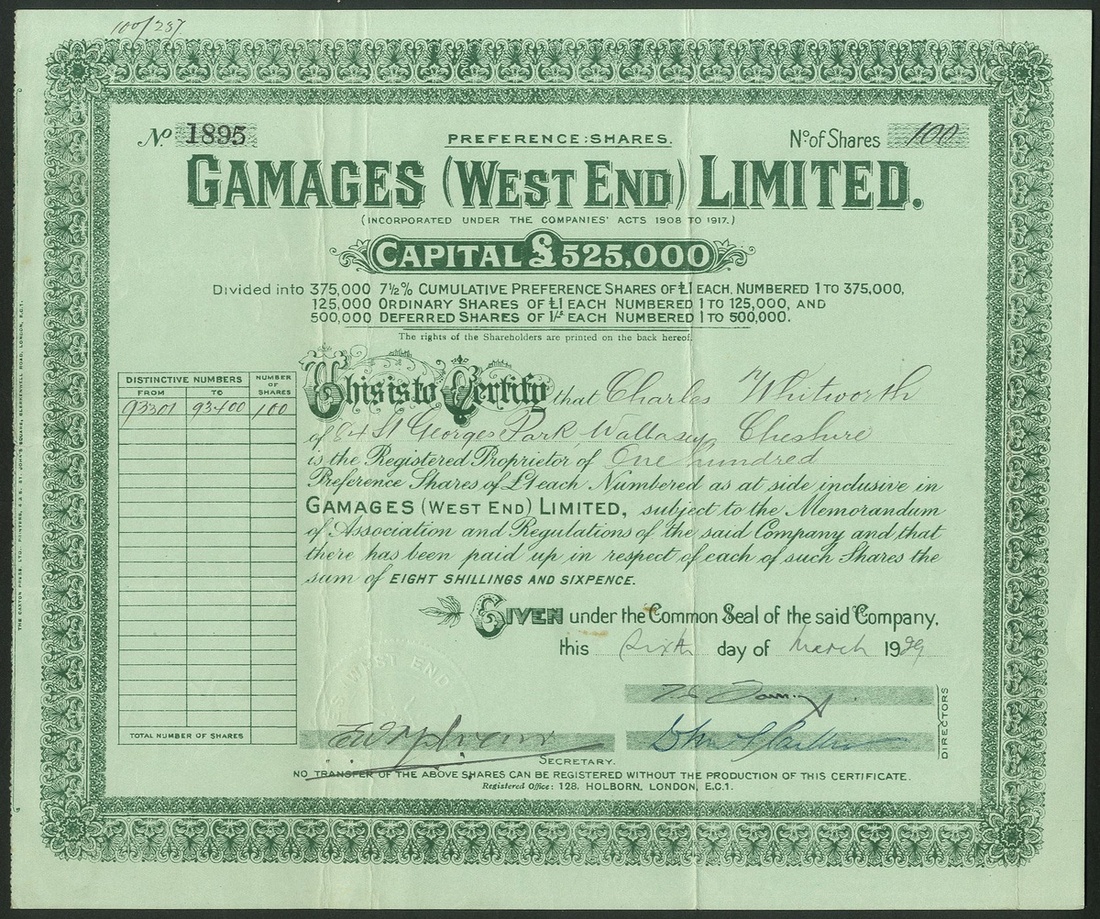 100/237
No. 1895
PREFERENCE:SHARES.
No. of Shares 100
GAMAGES (WEST END) LIMITED.
(INCORPORATED UNDER THE COMPANIES' ACTS 1908 TO 1917.)
CAPITAL £525,000
Divided into 375,000 7½% CUMULATIVE PREFERENCE SHARES OF £1 EACH, NUMBERED 1 TO 375,000,
125,000 ORDINARY SHARES OF £1 EACH NUMBERED 1 TO 125,000, AND
500,000 DEFERRED SHARES OF 1/- EACH NUMBERED 1 TO 500,000.
The rights of the Shareholders are printed on the back hereof.
DISTINCTIVE NUMBERS
NUMBER OF SHARES
FROM TO
93301 93400 100
TOTAL NUMBER OF SHARES
This is to Certify that Charles Whitworth
of 84 St Georges Park Wallasey Cheshire
is the Registered Proprietor of One hundred
Preference Shares of £1 each Numbered as at side inclusive in
GAMAGES (WEST END) LIMITED, subject to the Memorandum
of Association and Regulations of the said Company and that
there has been paid up in respect of each of such Shares the
sum of EIGHT SHILLINGS AND SIXPENCE.
GIVEN under the Common Seal of the said Company,
this Sixth day of March 1929
WEST END
DIRECTORS
SECRETARY.
NO TRANSFER OF THE ABOVE SHARES CAN BE REGISTERED WITHOUT THE PRODUCTION OF THIS CERTIFICATE.
Registered Office: 128, HOLBORN, LONDON, E.C.1.
THE CAXTON PRESS LTD. PRINTERS, 4 & 6, ST. JOHN'S SQUARE, CLERKENWELL ROAD, LONDON, E.C.1.